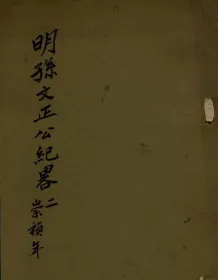 明孫文正公紀畧二
崇禎年